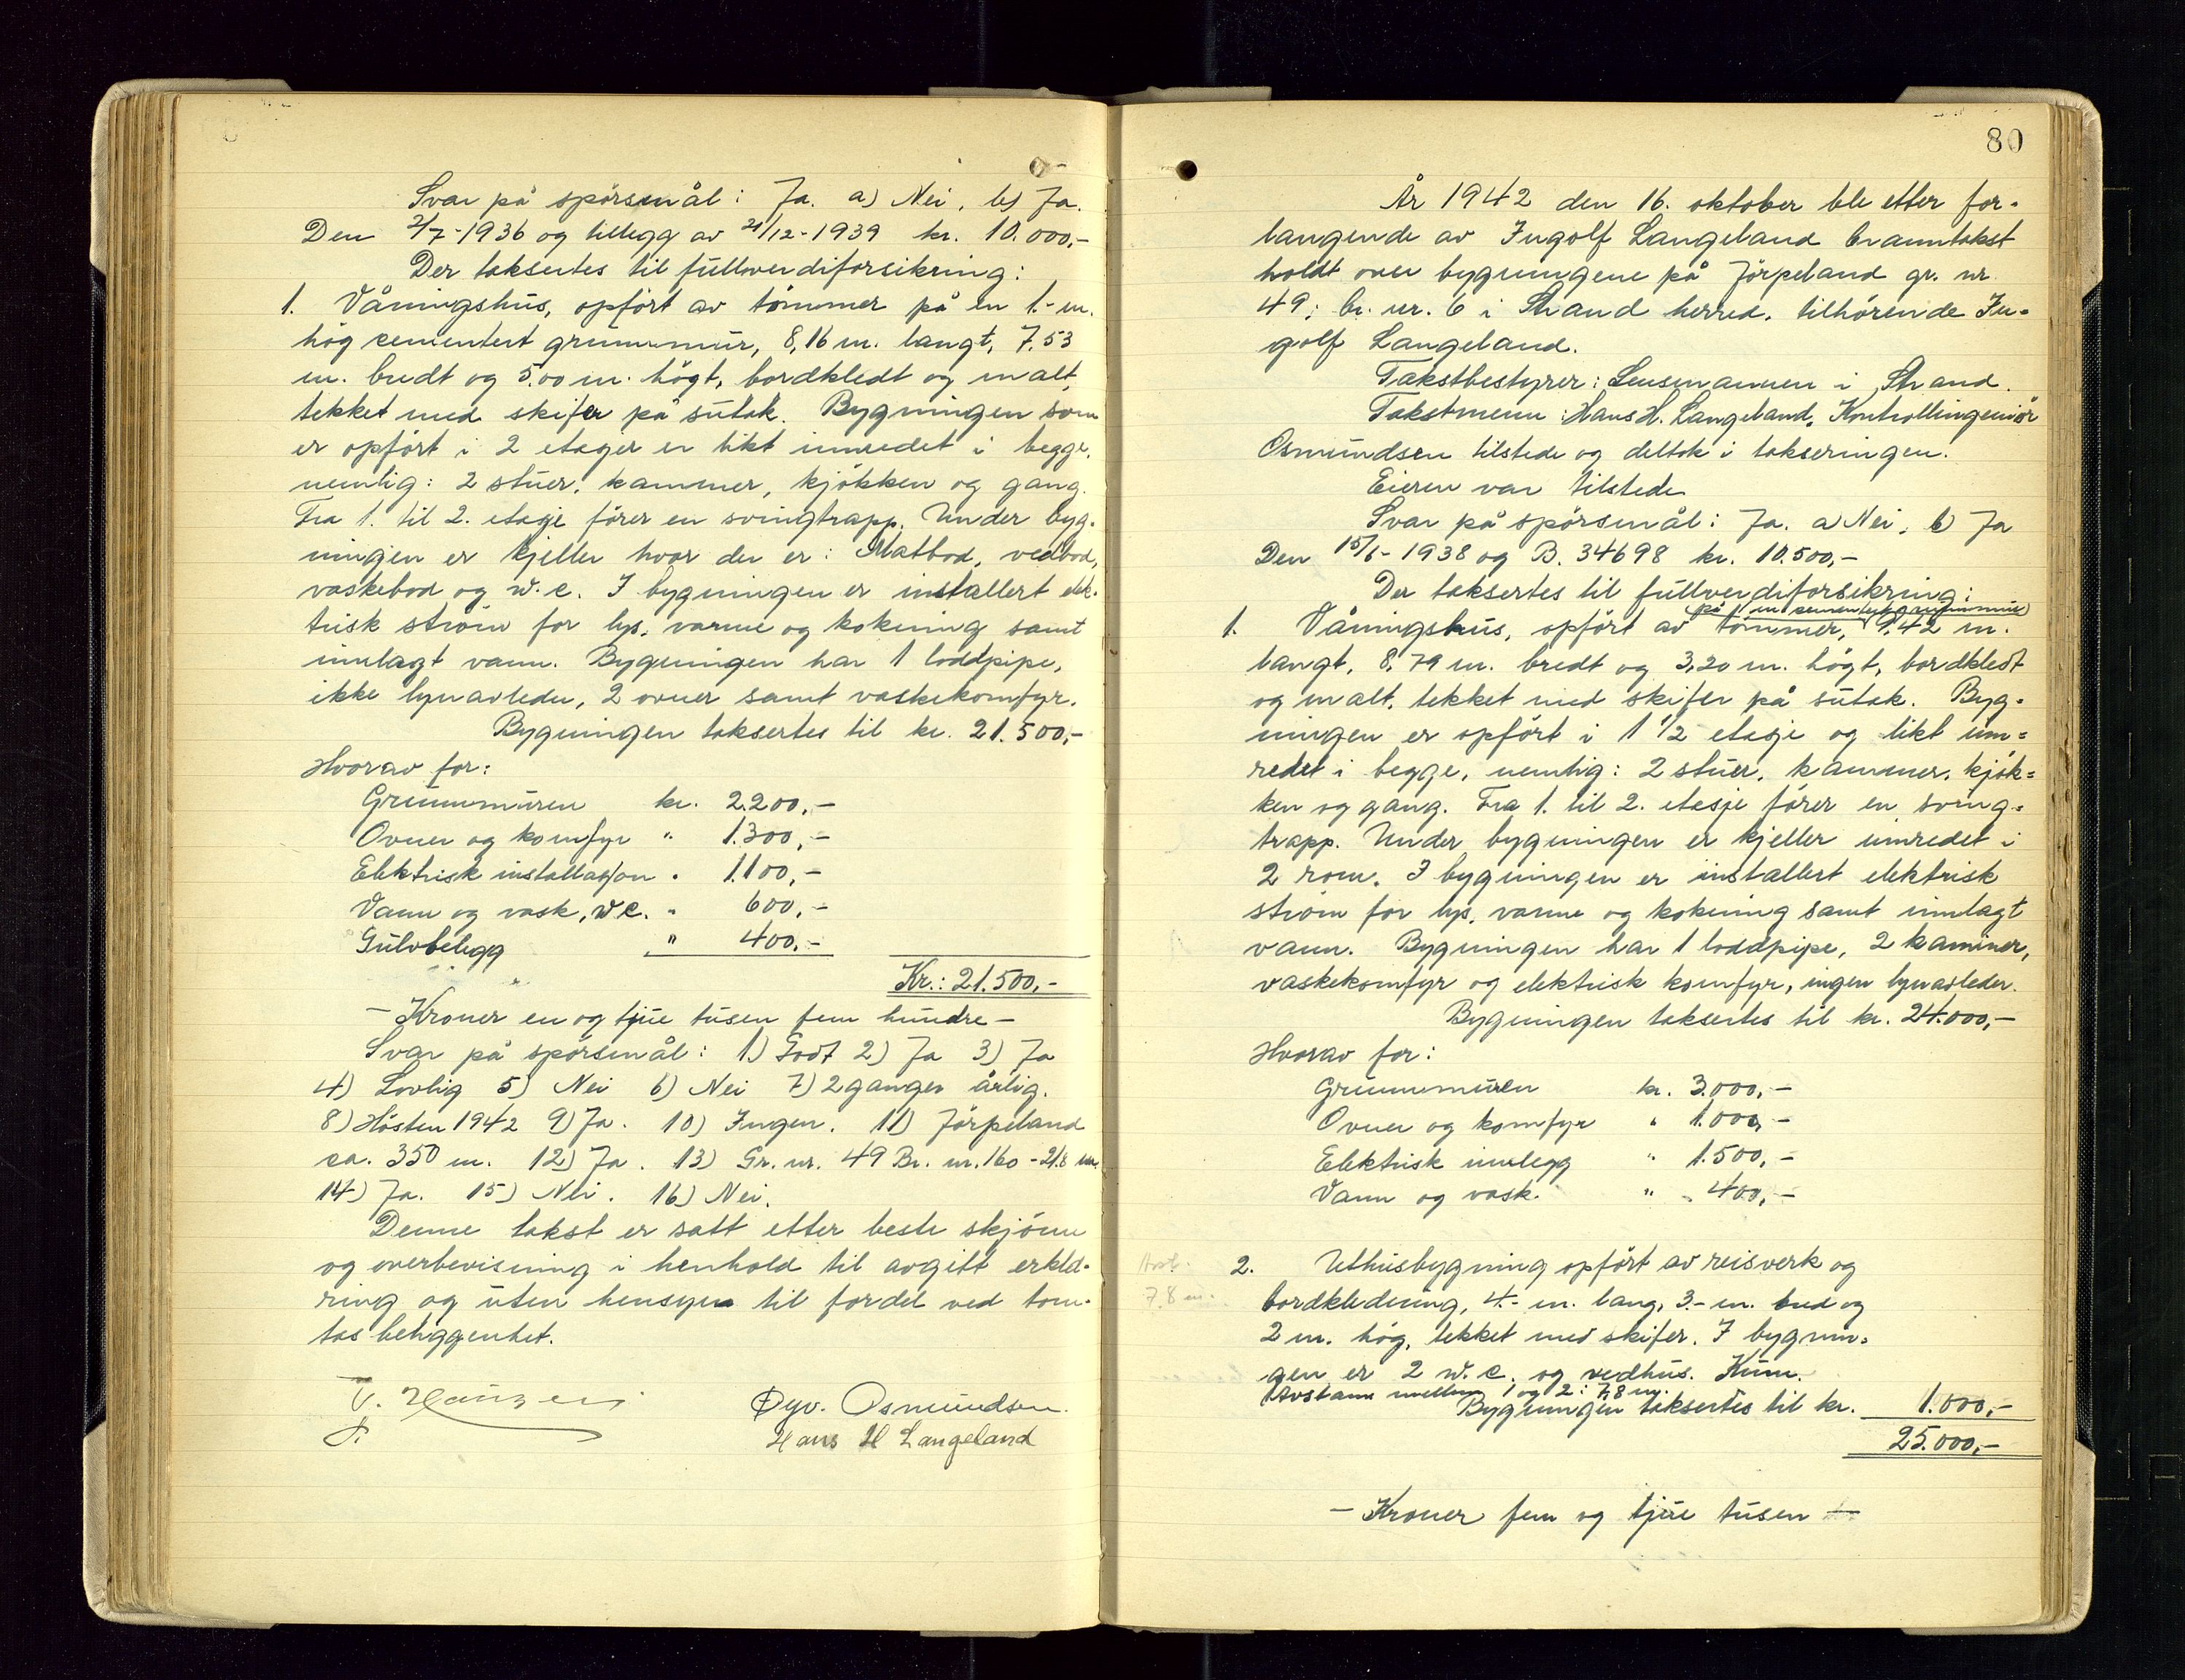 Svar på spørsmål: Ja. a) Nei, b) Ja.
Den 2/7-1936 og tillegg av 21/12-1939 kr. 10.000,-
Der taksertes til fullverdiforsikring:
1. Våningshus, opført av tømmer på en 1.- m.
høg cementert grunnmur, 8,16 m. langt, 7.53
m. bredt og 5.00 m. høgt, bordkledt og malt,
tekket med skifer på sutak. Bygningen som
er opført i 2 etasjer er likt innredet i begge,
nemlig: 2 stuer, kammer, kjøkken og gang.
Fra 1. til 2. etasje fører en svingtrapp. Under byg-
ningen er kjeller hvor der er: Matbod, vedbod,
vaskebod og w.c. I bygningen er installert elek-
trisk strøm for lys, varme og kokning samt
innlagt vann. Bygningen har 1 loddpipe,
ikke lynavleder, 2 ovner samt vaskekomfyr.
Bygningen taksertes til kr. 21.500,-
Hvorav for:
Grunnmuren kr. 2.200,-
Ovner og komfyr " 1.300,-
Elektrisk installasjon " 1.100,-
Vann og vask, w.c. " 600,-
Gulvbelegg " 400,-
Kr.: 21.500,-
- Kroner en og tjue tusen fem hundre -
Svar på spørsmål: 1) Godt 2) Ja 3) Ja
4) Lovlig 5) Nei 6) Nei 7) 2 ganger årlig.
8) Høsten 1942 9) Ja. 10) Ingen. 11) Jørpeland
ca. 350 m. 12) Ja. 13) Gr. nr. 49 Br. nr. 160 - 21.8 m.
14) Ja. 15) Nei. 16) Nei.
Denne takst er satt etter beste skjønn
og overbevisning i henhold til avgitt erklæ-
ring og uten hensyn til fordel ved tom-
tas beliggenhet.
Øyv. Osmundsen.
Hans H Langeland
80
År 1942 den 16. oktober ble etter for-
langende av Ingolf Langeland branntakst
holdt over bygningene på Jørpeland gr. nr.
49, br. nr. 6 i Strand herred, tilhørende In-
golf Langeland.
Takstbestyrer: Lensmannen i Strand.
Takstmenn: Hans H. Langeland, Kontrollingeniør
Osmundsen tilstede og deltok i takseringen.
Eieren var tilstede
Svar på spørsmål: Ja. a) Nei, b) Ja
Den 15/6-1938 og B. 34698 kr. 10.500,-
Der taksertes til fullverdiforsikring:
på 1 m cementert grunnmur
1. Våningshus, opført av tømmer, 9,42 m.
langt, 8,79 m. bredt og 3,20 m. høgt, bordkledt
og malt, tekket med skifer på sutak. Byg-
ningen er opført i 1 1/2 etasje og likt inn-
redet i begge, nemlig: 2 stuer, kammer, kjøk-
ken og gang. Fra 1. til 2. etasje fører en sving-
trapp. Under bygningen er kjeller innredet i
2 rom. I bygningen er installert elektrisk
strøm for lys, varme og kokning samt innlagt
vann. Bygningen har 1 loddpipe, 2 kaminer,
vaskekomfyr og elektrisk komfyr, ingen lynavleder.
Bygningen taksertes til kr. 24.000,-
Hvorav for:
Grunnmuren kr. 3.000,-
Ovner og komfyr " 1.000,-
Elektrisk innlegg " 1.500,-
Vann og vask. " 400,-
Avst.
7.8 m.
2. Uthusbygning opført av reisverk og
bordkledning, 4.- m. lang, 3.- m. bred og
2 m. høg, tekket med skifer. I bygnin-
gen er 2 w.c. og vedhus. Kum.
Avstann mellem 1 og 2: 7,8 m.
Bygningen taksertes til kr. 1.000,-
25.000,-
- Kroner fem og tjue tusen -